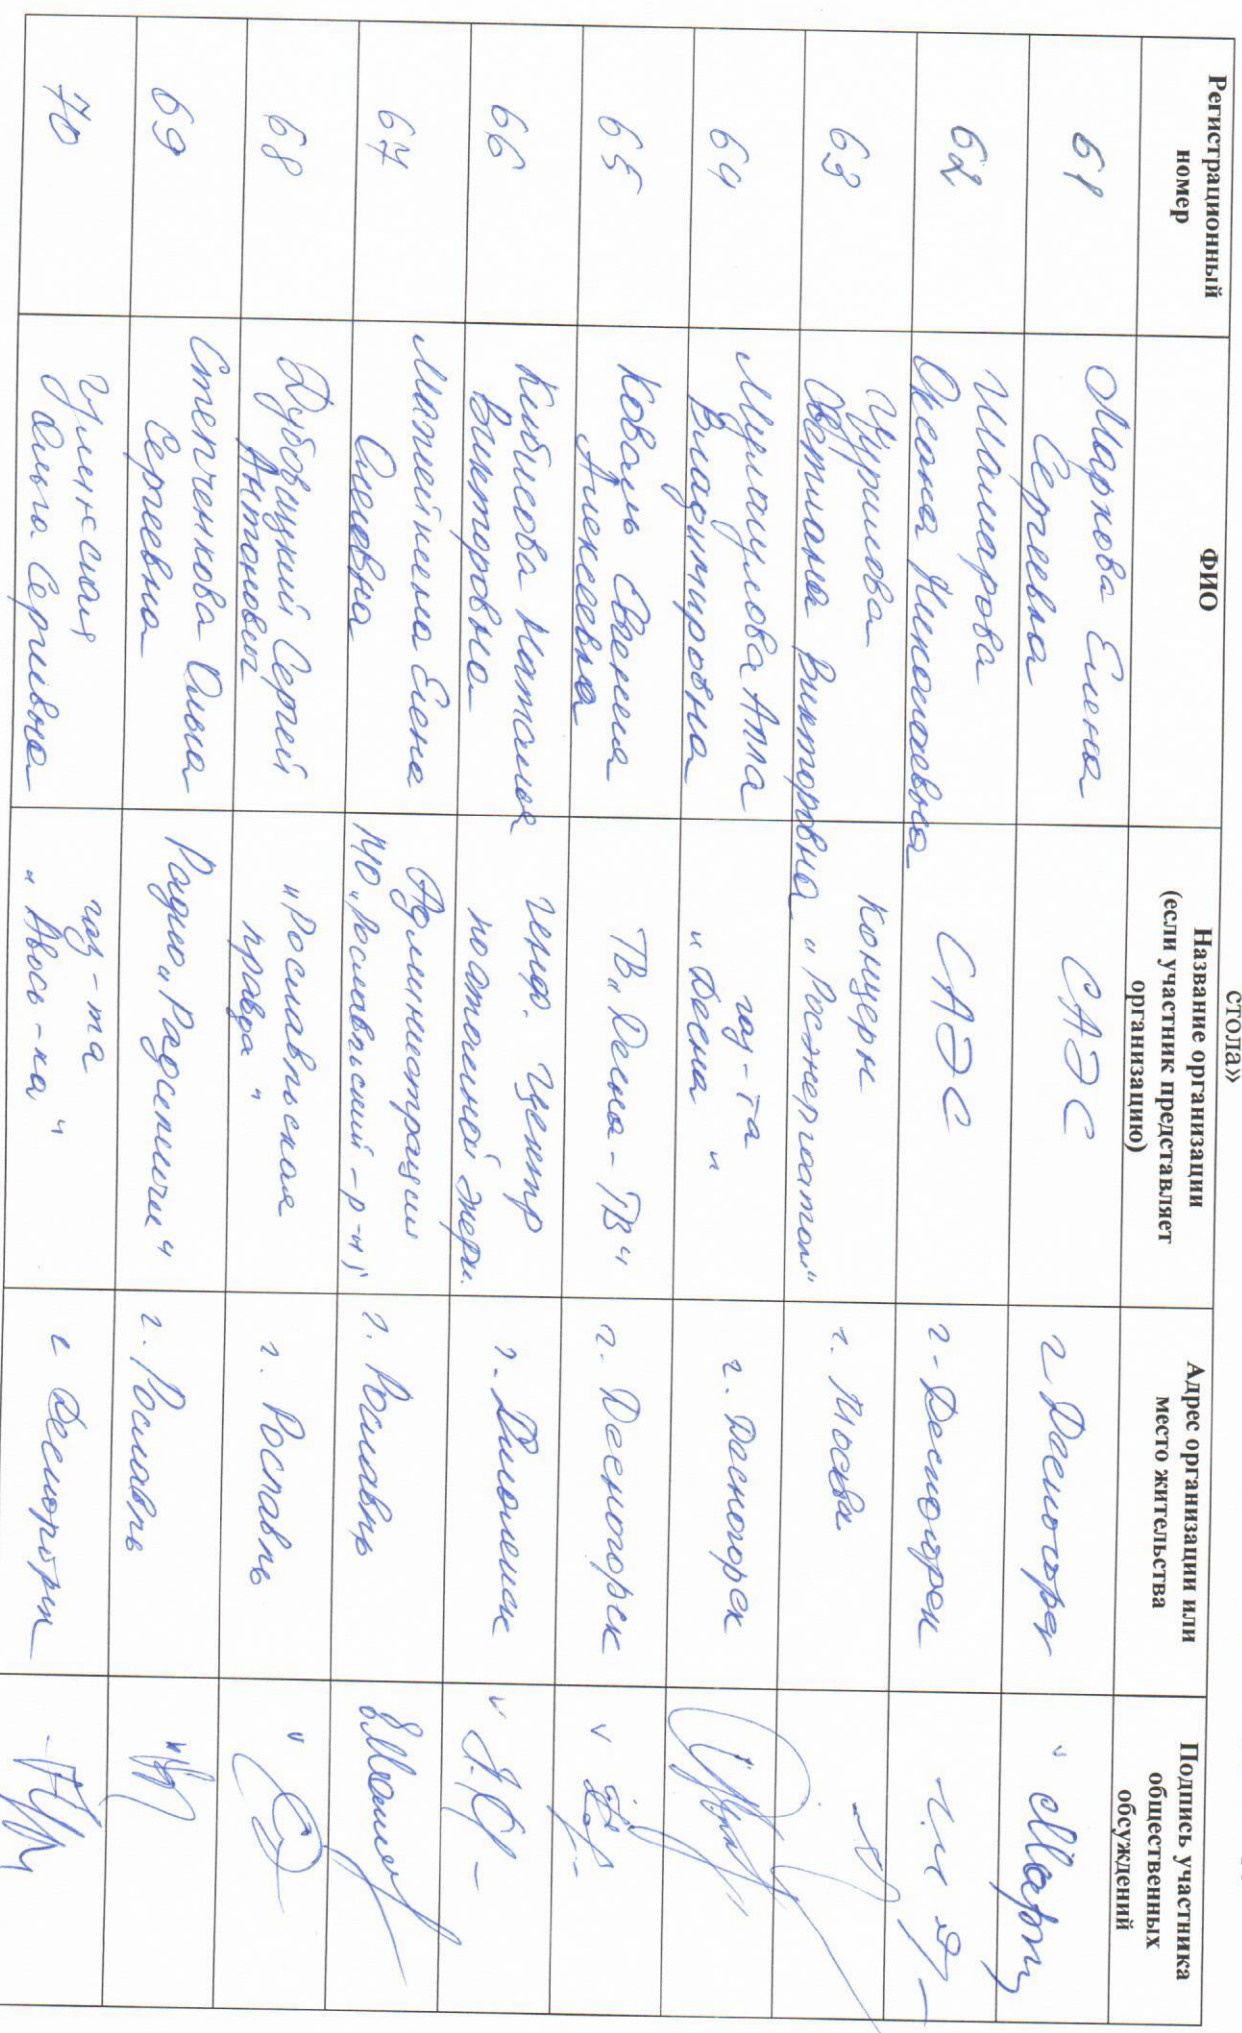 стола»
Регистрационный номер
ФИО
Название организации
(если участник представляет
организацию)
Адрес организации или
место жительства
Подпись участника
общественных
обсуждений
61
Маркова Елена
Сергеевна
САЭС
г Десногорск
62
Шамарова
Оксана Николаевна
САЭС
г. Десногорск
63
Чурилова
Светлана Викторовна
Концерн
"Росэнергоатом"
г. Москва
64
Алла
Владимировна
газ-та
"Десна"
г. Десногорск
65
Коваль Евгения
Алексеевна
ТВ "Десна-ТВ"
г. Десногорск
66
Наталья
Викторовна
Центр
по атомной энерг.
67
Елена
Олеговна
Администрация
МО "Рославльский р-н"
г. Рославль
68
Дубовицкий Сергей
Антонович
"Рославльская
правда"
г. Рославль
69
Степченкова Ольга
Сергеевна
Радио "Радимичи"
г. Рославль
70
Ольга Сергеевна
газ-та
"Авось-ка"
г Десногорск